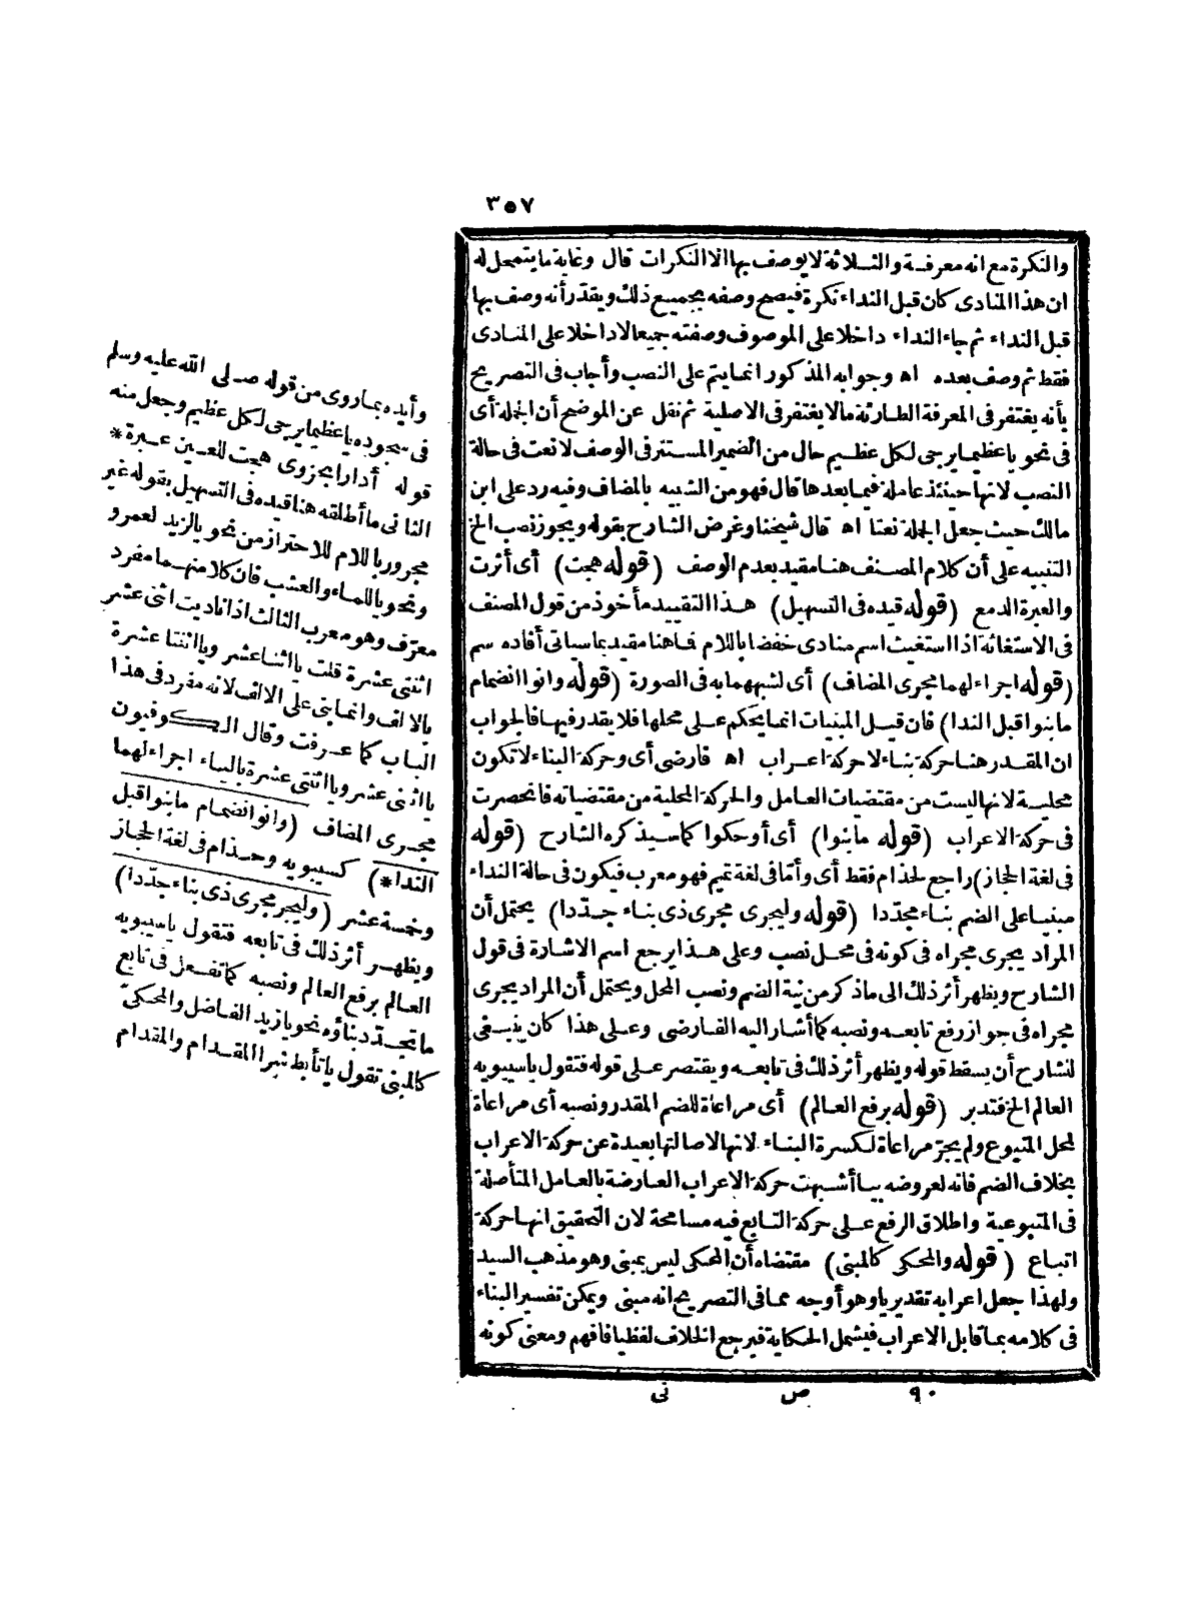 ٣٥٧
والنكرة مع انه معرفة والثلاثة لا يوصف بها الا النكرات قال وغاية ما يتمحل له
ان هذا المنادى كان قبل النداء نكرة فيصح وصفه بجميع ذلك ويقدر أنه وصف بها
قبل النداء ثم جاء النداء داخلا على الموصوف وصفته جميعا لا داخلا على المنادى
فقط ثم وصف بعده اه وجوابه المذكور انما يتم على النصب وأجاب فى التصريح
بأنه يغتفر فى المعرفة الطارئة ما لا يغتفر فى الاصلية ثم نقل عن الموضح أن الجملة أى
فى نحو يا عظيما يرجى لكل عظيم حال من الضمير المستتر فى الوصف لا نعت فى حالة
النصب لانها حينئذ عاملة فيما بعدها قال فهو من الشبيه بالمضاف وفيه رد على ابن
مالك حيث جعل الجملة نعتا اه قال شيخنا وغرض الشارح بقوله ويجوز نصب الخ
التنبيه على أن كلام المصنف هنا مقيد بعدم الوصف (قوله هجت) أى أثرت
والعبرة الدمع (قوله قيده فى التسهيل) هذا التقييد مأخوذ من قول المصنف
فى الاستغاثه اذا استغيث اسم منادى خفضا باللام فما هنا مقيد بما سيأتى أفاده سم
(قوله اجراء لهما مجرى المضاف) أى لشبههما به فى الصورة (قوله وانوا انضمام
ما بنوا قبل الندا) فان قيل المبنيات انما يحكم على محلها فلا يقدر فيها فالجواب
ان المقدر هنا حركة بناء لا حركة اعراب اه فارضى أى وحركة البناء لا تكون
محلية لانها ليست من مقتضيات العامل والحركة المحلية من مقتضياته فانحصرت
فى حركة الاعراب (قوله ما بنوا) أى أو حكوا كما سيذكره الشارح (قوله
فى لغة الحجاز) راجع لحذام فقط أى وأما فى لغة تميم فهو معرب فيكون فى حالة النداء
مبنيا على الضم بناء مجددا (قوله وليجرى مجرى ذى بناء جددا) يحتمل أن
المراد يجرى مجراه فى كونه فى محل نصب وعلى هذا يرجع اسم الاشارة فى قول
الشارح ويظهر أثر ذلك الى ما ذكر من نية الضم ونصب المحل ويحتمل أن المراد يجرى
مجراه فى جواز رفع تابعه ونصبه كما أشار اليه الفارضى وعلى هذا كان ينبغى
للشارح أن يسقط قوله ويظهر أثر ذلك فى تابعه ويقتصر على قوله فتقول يا سيبويه
العالم الخ فتدبر (قوله برفع العالم) أى مراعاة للضم المقدر ونصبه أى مراعاة
لمحل المتبوع ولم يجز مراعاة لكسرة البناء لانها لاصالتها بعيدة عن حركة الاعراب
بخلاف الضم فانه لعروضه بيا أشبهت حركة الاعراب العارضة بالعامل المتأصلة
فى المتبوعية واطلاق الرفع على حركة التابع فيه مسامحة لان التحقيق انها حركة
اتباع (قوله والمحكى كالمبنى) مقتضاه أن المحكى ليس بمبنى وهو مذهب السيد
ولهذا جعل اعرابه تقديريا وهو أوجه مما فى التصريح انه مبنى ويمكن تفسير البناء
فى كلامه بما قابل الاعراب فيشمل الحكاية فيرجع الخلاف لفظيا فافهم ومعنى كونه
٩٠ ص نى
وأيده بما روى من قوله صلى الله عليه وسلم
فى سجوده يا عظيما يرجى لكل عظيم وجعل منه
قوله أدارا بحزوى هجت للعين عبرة*
الثانى ما أطلقه هنا قيده فى التسهيل بقوله غير
مجرور باللام للاحتراز من نحو يا لزيد لعمرو
ونحو يا للماء والعشب فان كلا منهما مفرد
معرف وهو معرب الثالث اذا ناديت اثنى عشر
اثنتى عشرة قلت يا اثنا عشر ويا اثنتا عشرة
بالالف وانما بنى على الالف لانه مفرد فى هذا
الباب كما عرفت وقال الكوفيون
يا اثنى عشر ويا اثنتى عشرة بالياء اجراء لهما
مجرى المضاف (وانوا انضمام ما بنوا قبل
الندا*) كسيبويه وحذام فى لغة الحجاز
وخمسة عشر (وليجر مجرى ذى بناء جددا)
ويظهر أثر ذلك فى تابعه فتقول يا سيبويه
العالم برفع العالم ونصبه كما تفعل فى تابع
ما تجدد بناؤه نحو يا زيد الفاضل والمحكى
كالمبنى تقول يا تأبط شرا المقدام والمقدام